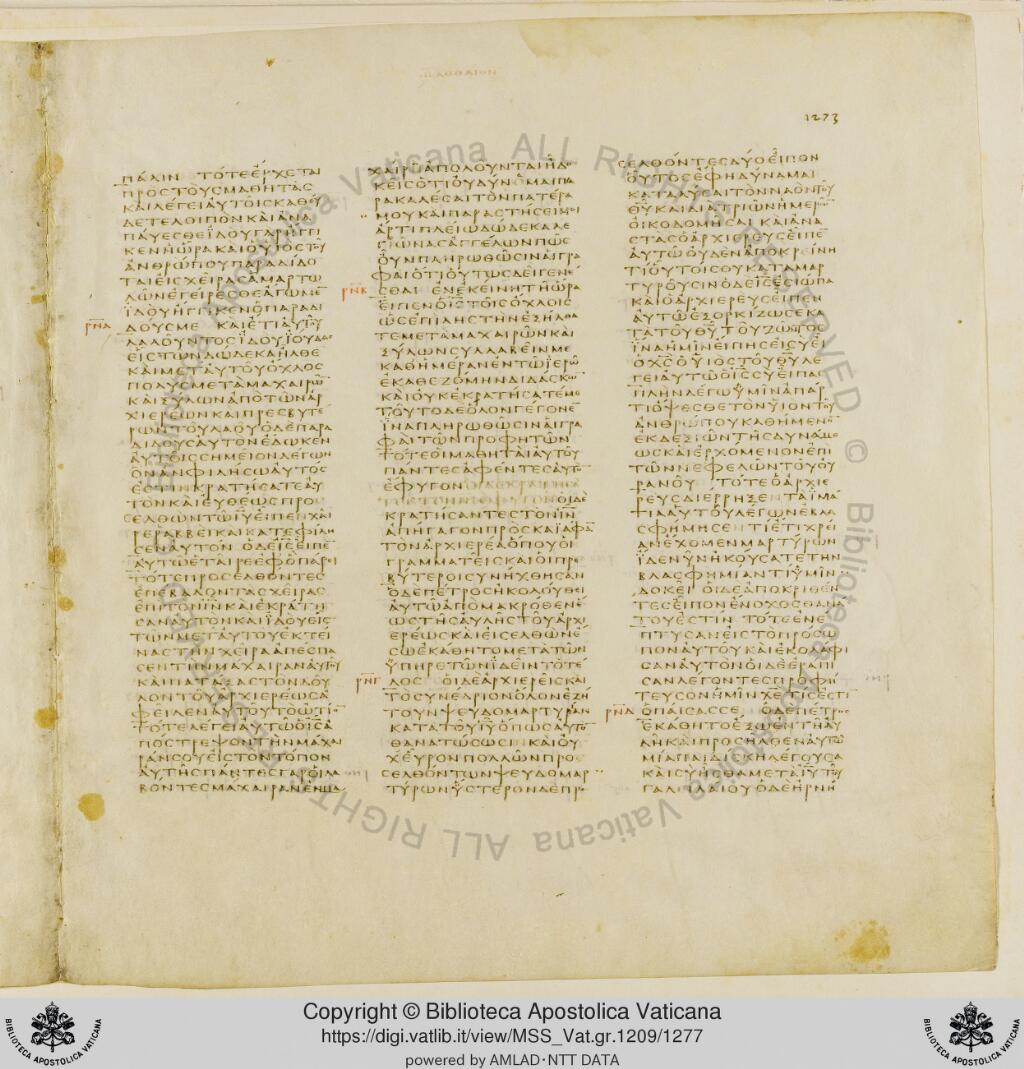 1273
ΠΑΛΙΝ ΤΟΤΕΕΡΧΕΤΑΙ
ΠΡΟΣΤΟΥΣΜΑΘΗΤΑΣ
ΚΑΙΛΕΓΕΙΑΥΤΟΙΣΚΑΘΕΥ
ΔΕΤΕΛΟΙΠΟΝΚΑΙΑΝΑ
ΠΑΥΕΣΘΕΙΔΟΥΓΑΡΗΓΓΙ
ΚΕΝΗΩΡΑΚΑΙΟΥΙΟΣΤΟΥ
ΑΝΘΡΩΠΟΥΠΑΡΑΔΙΔΟ
ΤΑΙΕΙΣΧΕΙΡΑΣΑΜΑΡΤΩ
ΛΩΝΕΓΕΙΡΕΣΘΕΑΓΩΜΕ̅
ΙΔΟΥΗΓΓΙΚΕΝΟΠΑΡΑΔΙ
ΡΝΑ ΔΟΥΣΜΕ ΚΑΙΕΤΙΑΥΤΟΥ
ΛΑΛΟΥΝΤΟΣΙΔΟΥΙΟΥΔΑΣ
ΕΙΣΤΩΝΔΩΔΕΚΑΗΛΘΕ
ΚΑΙΜΕΤΑΥΤΟΥΟΧΛΟΣ
ΠΟΛΥΣΜΕΤΑΜΑΧΑΙΡΩ̅
ΚΑΙΞΥΛΩΝΑΠΟΤΩΝΑΡ
ΧΙΕΡΕΩΝΚΑΙΠΡΕΣΒΥΤΕ
ΡΩΝΤΟΥΛΑΟΥΟΔΕΠΑΡΑ
ΔΙΔΟΥΣΑΥΤΟΝΕΔΩΚΕΝ
ΑΥΤΟΙΣΣΗΜΕΙΟΝΛΕΓΩ̅
ΟΝΑΝΦΙΛΗΣΩΑΥΤΟΣ
ΕΣΤΙΝΚΡΑΤΗΣΑΤΕΑΥ
ΤΟΝΚΑΙΕΥΘΕΩΣΠΡΟΣ
ΕΛΘΩΝΤΩΙ̅Υ̅ΕΙΠΕΝΧΑΙ
ΡΕΡΑΒΒΕΙΚΑΙΚΑΤΕΦΙΛΗ
ΣΕΝΑΥΤΟΝ ΟΔΕΙ̅Σ̅ΕΙΠΕ̅
ΑΥΤΩΕΤΑΙΡΕΕΦΟΠΑΡΕΙ
ΤΟΤΕΠΡΟΣΕΛΘΟΝΤΕΣ
ΕΠΕΒΑΛΟΝΤΑΣΧΕΙΡΑΣ
ΕΠΙΤΟΝΙ̅Ν̅ΚΑΙΕΚΡΑΤΗ
ΣΑΝΑΥΤΟΝΚΑΙΙΔΟΥΕΙΣ
ΤΩΝΜΕΤΑΥΤΟΥΕΚΤΕΙ
ΝΑΣΤΗΝΧΕΙΡΑΑΠΕΣΠΑ
ΣΕΝΤΗΝΜΑΧΑΙΡΑΝΑΥΤΟΥ
ΚΑΙΠΑΤΑΞΑΣΤΟΝΔΟΥ
ΛΟΝΤΟΥΑΡΧΙΕΡΕΩΣΑ
ΦΕΙΛΕΝΑΥΤΟΥΤΟΩΤΙΟ̅
ΤΟΤΕΛΕΓΕΙΑΥΤΩΟΙ̅Σ̅Α
ΠΟΣΤΡΕΨΟΝΤΗΝΜΑΧΑΙ
ΡΑΝΣΟΥΕΙΣΤΟΝΤΟΠΟΝ
ΑΥΤΗΣΠΑΝΤΕΣΓΑΡΟΙΛΑ
ΒΟΝΤΕΣΜΑΧΑΙΡΑΝΕΝΜΑ
ΧΑΙΡΗΑΠΟΛΟΥΝΤΑΙΗΔΟ
ΚΕΙΣΟΤΙΟΥΔΥΝΟΜΑΙΠΑ
ΡΑΚΑΛΕΣΑΙΤΟΝΠΑΤΕΡΑ
ΜΟΥΚΑΙΠΑΡΑΣΤΗΣΕΙΜΟΙ
ΑΡΤΙΠΛΕΙΩΔΩΔΕΚΑΛΕ
ΓΙΩΝΑΣΑΓΓΕΛΩΝΠΩΣ
ΟΥΝΠΛΗΡΩΘΩΣΙΝΑΙΓΡΑ
ΦΑΙΟΤΙΟΥΤΩΣΔΕΙΓΕΝΕ
ΡΝΒ ΣΘΑΙ ΕΝΕΚΕΙΝΗΤΗΩΡΑ
ΕΙΠΕΝΟΙ̅Σ̅ΤΟΙΣΟΧΛΟΙΣ
ΩΣΕΠΙΛΗΣΤΗΝΕΞΗΛΘΑ
ΤΕΜΕΤΑΜΑΧΑΙΡΩΝΚΑΙ
ΞΥΛΩΝΣΥΛΛΑΒΕΙΝΜΕ
ΚΑΘΗΜΕΡΑΝΕΝΤΩΙΕΡΩ
ΕΚΑΘΕΖΟΜΗΝΔΙΔΑΣΚΩ̅
ΚΑΙΟΥΚΕΚΡΑΤΗΣΑΤΕΜΕ
ΤΟΥΤΟΔΕΟΛΟΝΓΕΓΟΝΕ̅
ΙΝΑΠΛΗΡΩΘΩΣΙΝΑΙΓΡΑ
ΦΑΙΤΩΝΠΡΟΦΗΤΩΝ
ΤΟΤΕΟΙΜΑΘΗΤΑΙΑΥΤΟΥ
ΠΑΝΤΕΣΑΦΕΝΤΕΣΑΥΤΟ̅
ΕΦΥΓΟΝ
ΟΙΔΕ
ΚΡΑΤΗΣΑΝΤΕΣΤΟΝΙ̅Ν̅
ΑΠΗΓΑΓΟΝΠΡΟΣΚΑΙΑΦΑ̅
ΤΟΝΑΡΧΙΕΡΕΑΟΠΟΥΟΙ
ΓΡΑΜΜΑΤΕΙΣΚΑΙΟΙΠΡΕΣ
ΒΥΤΕΡΟΙΣΥΝΗΧΘΗΣΑΝ
ΟΔΕΠΕΤΡΟΣΗΚΟΛΟΥΘΕΙ
ΑΥΤΩΑΠΟΜΑΚΡΟΘΕΝΕ
ΩΣΤΗΣΑΥΛΗΣΤΟΥΑΡΧΙ
ΕΡΕΩΣΚΑΙΕΙΣΕΛΘΩΝΕ
ΣΩΕΚΑΘΗΤΟΜΕΤΑΤΩΝ
ΥΠΗΡΕΤΩΝΙΔΕΙΝΤΟΤΕ
ΡΝΓ ΛΟΣ ΟΙΔΕΑΡΧΙΕΡΕΙΣΚΑΙ
ΤΟΣΥΝΕΔΡΙΟΝΟΛΟΝΕΖΗ
ΤΟΥΝΨΕΥΔΟΜΑΡΤΥΡΙΑΝ
ΚΑΤΑΤΟΥΙ̅Υ̅ΟΠΩΣΑΥΤΟ̅
ΘΑΝΑΤΩΣΩΣΙΝΚΑΙΟΥ
ΧΕΥΡΟΝΠΟΛΛΩΝΠΡΟ
ΣΕΛΘΟΝΤΩΝΨΕΥΔΟΜΑΡ
ΤΥΡΩΝΥΣΤΕΡΟΝΔΕΠΡΟ
ΣΕΛΘΟΝΤΕΣΔΥΟΕΙΠΟΝ
ΟΥΤΟΣΕΦΗΔΥΝΑΜΑΙ
ΚΑΤΑΛΥΣΑΙΤΟΝΝΑΟΝΤΟΥ
Θ̅Υ̅ΚΑΙΔΙΑΤΡΙΩΝΗΜΕΡΩ̅
ΟΙΚΟΔΟΜΗΣΑΙ ΚΑΙΑΝΑ
ΣΤΑΣΟΑΡΧΙΕΡΕΥΣΕΙΠΕ̅
ΑΥΤΩΟΥΔΕΝΑΠΟΚΡΕΙΝΗ
ΤΙΟΥΤΟΙΣΟΥΚΑΤΑΜΑΡ
ΤΥΡΟΥΣΙΝΟΔΕΙ̅Σ̅ΕΣΙΩΠΑ
ΚΑΙΟΑΡΧΙΕΡΕΥΣΕΙΠΕΝ
ΑΥΤΩΕΞΟΡΚΙΖΩΣΕΚΑ
ΤΑΤΟΥΘ̅Υ̅ΤΟΥΖΩΝΤΟΣ
ΙΝΑΗΜΙΝΕΙΠΗΣΕΙΣΥΕΙ
ΟΧ̅Σ̅ΟΥΙΟΣΤΟΥΘ̅Υ̅ΛΕ
ΓΕΙΑΥΤΩΟΙ̅Σ̅ΣΥΕΙΠΑΣ
ΠΛΗΝΛΕΓΩΥΜΙΝΑΠΑΡ
ΤΙΟΨΕΣΘΕΤΟΝΥΙΟΝΤΟΥ
ΑΝΘΡΩΠΟΥΚΑΘΗΜΕΝΟ̅
ΕΚΔΕΞΙΩΝΤΗΣΔΥΝΑΜΕ
ΩΣΚΑΙΕΡΧΟΜΕΝΟΝΕΠΙ
ΤΩΝΝΕΦΕΛΩΝΤΟΥΟΥ
ΡΑΝΟΥ ΤΟΤΕΟΑΡΧΙΕ
ΡΕΥΣΔΙΕΡΡΗΞΕΝΤΑΙΜΑ
ΤΙΑΑΥΤΟΥΛΕΓΩΝΕΒΛΑ
ΣΦΗΜΗΣΕΝΤΙΕΤΙΧΡΕΙ
ΑΝΕΧΟΜΕΝΜΑΡΤΥΡΩΝ
ΙΔΕΝΥΝΗΚΟΥΣΑΤΕΤΗΝ
ΒΛΑΣΦΗΜΙΑΝΤΙΥΜΙΝ
ΔΟΚΕΙ ΟΙΔΕΑΠΟΚΡΙΘΕΝ
ΤΕΣΕΙΠΟΝΕΝΟΧΟΣΘΑΝΑ
ΤΟΥΕΣΤΙΝ ΤΟΤΕΕΝΕ
ΠΤΥΣΑΝΕΙΣΤΟΠΡΟΣΩ
ΠΟΝΑΥΤΟΥΚΑΙΕΚΟΛΑΦΙ
ΣΑΝΑΥΤΟΝΟΙΔΕΕΡΑΠΙ
ΣΑΝΛΕΓΟΝΤΕΣΠΡΟΦΗ
ΤΕΥΣΟΝΗΜΙΝΧ̅Ε̅ΤΙΣΕΣΤΙ
ΡΝΔ ΟΠΑΙΣΑΣΣΕ ΟΔΕΠΕΤΡΟΣ
ΕΚΑΘΗΤΟΕΞΩΕΝΤΗΑΥ
ΛΗΚΑΙΠΡΟΣΗΛΘΕΝΑΥΤΩ
ΜΙΑΠΑΙΔΙΣΚΗΛΕΓΟΥΣΑ
ΚΑΙΣΥΗΣΘΑΜΕΤΑΙ̅Υ̅ΤΟΥ
ΓΑΛΕΙΛΑΙΟΥΟΔΕΗΡΝΗ
Copyright © Biblioteca Apostolica Vaticana
https://digi.vatlib.it/view/MSS_Vat.gr.1209/1277
powered by AMLAD·NTT DATA
BIBLIOTECA APOSTOLICA VATICANA
BIBLIOTECA APOSTOLICA VATICANA